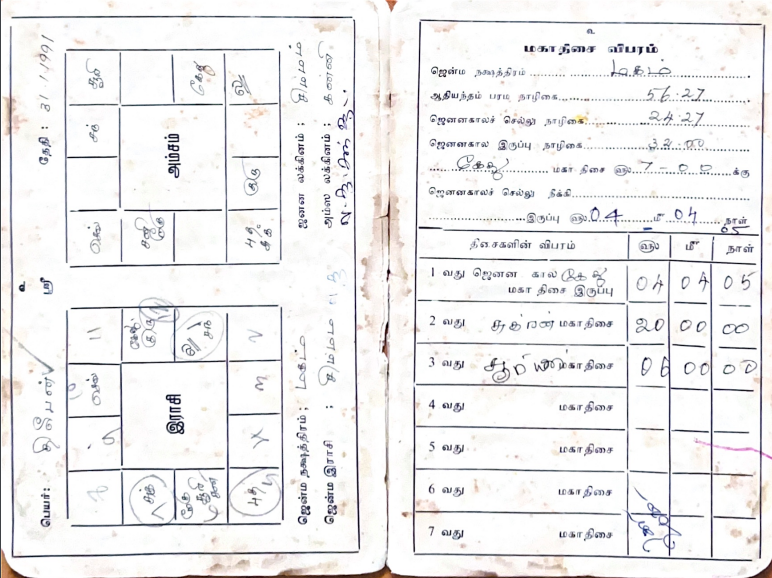 பெயர்:
ஸ்ரீ
தேதி: 31.1.1991
செவ்
கேது
குரு
இராசி
ல//
சந்
சுக்
சூரி
சனி
புத
சூரி
சந்
கேது
அம்சம்
ல
செவ்
சனி
குரு
புத
சுக்
ஜென்ம நக்ஷத்திரம்; மகம்
ஜென்ம இராசி : சிம்மம்
ஜனன லக்கினம்; சிம்மம்
அம்ஸ லக்கினம்; கன்னி
உ
மகாதிசை விபரம்
ஜென்ம நக்ஷத்திரம் மகம்
ஆதியந்தம் பரம நாழிகை 56.27
ஜெனனகாலச் செல்லு நாழிகை 24.27
ஜெனனகால இருப்பு நாழிகை 32.00
கேது மகா திசை ௵ 7-00 க்கு
ஜெனனகாலச் செல்லு நீக்கி
இருப்பு ௵ 04 மீ 04 நாள் 05
திசைகளின் விபரம் ௵ மீ நாள்
1 வது ஜெனன கால கேது மகா திசை இருப்பு 04 04 05
2 வது சுக்ரன் மகாதிசை 20 00 00
3 வது சூரியன் மகாதிசை 06 00 00
4 வது மகாதிசை
5 வது மகாதிசை
6 வது மகாதிசை
7 வது மகாதிசை